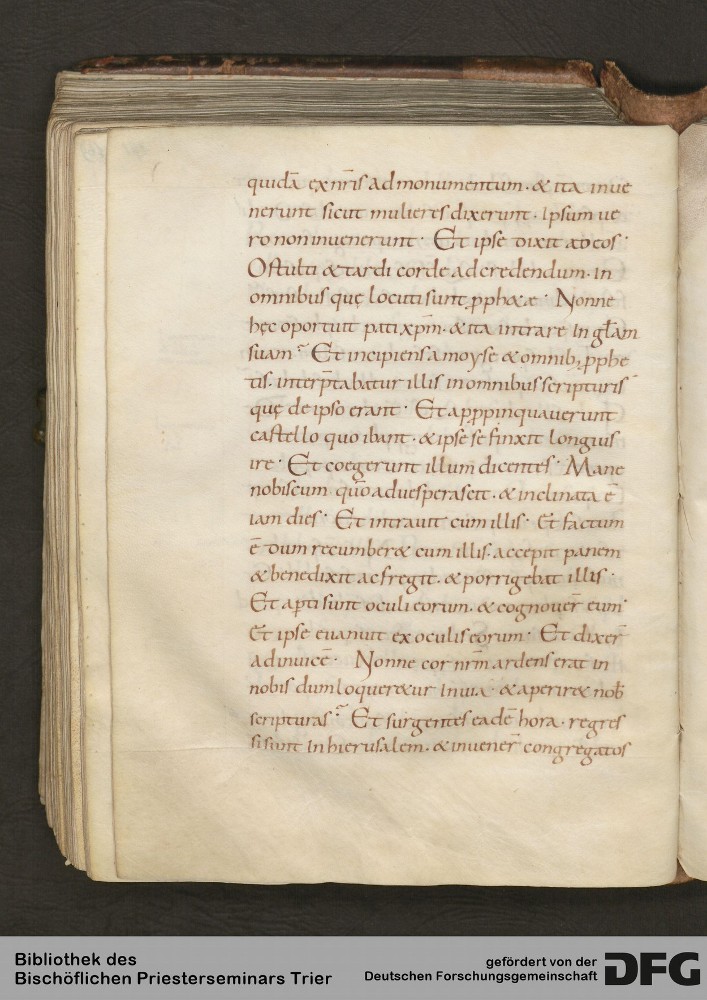 quidā ex nr̄is ad monumentum · & ita inue
nerunt sicut mulieres dixerunt · Ipsum ue
ro non inuenerunt · Et ipse dixit ad eos ·
O stulti & tardi corde ad credendum · in
omnibus quę locuti sunt ꝓph&ae · Nonne
hęc oportuit pati xp̄m · & ita intrare in głam
suam · Et incipiens a moyse & omnib; ꝓphe
tis · interp̄tabatur illis in omnibus scripturis
quę de ipso erant · Et apꝓpinquauerunt
castello quo ibant · & ipse se finxit longius
ire · Et coegerunt illum dicentes · Mane
nobiscum qūo aduesperascit · & inclinata ē
iam dies · Et intrauit cum illis · Et factum
ē dum recumber& cum illis · accepit panem
& benedixit ac fregit · & porrigebat illis ·
Et apti sunt oculi eorum · & cognouer̄ eum ·
Et ipse euanuit ex oculis eorum · Et dixer̄
ad inuicē · Nonne cor nr̄m ardens erat in
nobis dum loquer&ur in uia · & aperir& nob̄
scripturas · Et surgentes eadē hora · regres
si sunt in hierusalem · & inuener̄ congregatos
Bibliothek des
Bischöflichen Priesterseminars Trier
gefördert von der
Deutschen Forschungsgemeinschaft
DFG